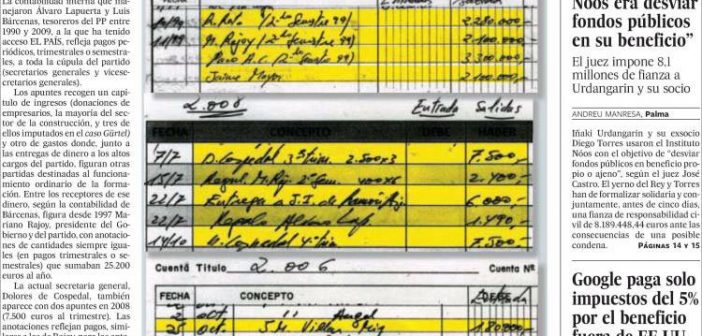 La contabilidad interna que ma-
nejaron Álvaro Lapuerta y Luis
Bárcenas, tesoreros del PP entre
1990 y 2009, a la que ha tenido
acceso EL PAÍS, refleja pagos pe-
riódicos, trimestrales o semestra-
les, a toda la cúpula del partido
(secretarios generales y vicese-
cretarios generales).
Los apuntes recogen un capí-
tulo de ingresos (donaciones de
empresarios, la mayoría del sec-
tor de la construcción, y tres de
ellos imputados en el caso Gürtel)
y otro de gastos donde, junto a
las entregas de dinero a los altos
cargos del partido, figuran otras
partidas destinadas al funciona-
miento ordinario de la forma-
ción. Entre los receptores de ese
dinero, según la contabilidad de
Bárcenas, figura desde 1997 Ma-
riano Rajoy, presidente del Go-
bierno y del partido, con anotacio-
nes de cantidades siempre igua-
les (en pagos trimestrales o se-
mestrales) que sumaban 25.200
euros al año.
La actual secretaria general,
Dolores de Cospedal, también
aparece con dos apuntes en 2008
(7.500 euros al trimestre). Las
anotaciones reflejan pagos, simi-
R. Rato (2º Semestre 99) 2.280.000
M. Rajoy (2º Semestre 99) 2.100.000
3.300.000
Jaime Mayor 2.100.000
2.008 Entrada Salidas
FECHA CONCEPTO DEBE HABER
7/7 D. Cospedal 3º trim. 2.500x3 7.500
15/7 2.400
22/7 Entrega a J.I. de 6.000
22/7 Regalo 1.490
14/10 D. Cospedal 4º trim 7.500
Cuenta Título 2.006 Cuenta Nº
FECHA CONCEPTO
2 oct Angel
25 oct J.M. Villar Mir 180.000
Nóos era desviar
fondos públicos
en su beneficio”
El juez impone 8,1
millones de fianza a
Urdangarin y su socio
ANDREU MANRESA, Palma
Iñaki Urdangarin y su exsocio
Diego Torres usaron el Instituto
Nóos con el objetivo de “desviar
fondos públicos en beneficio pro-
pio o ajeno”, según el juez José
Castro. El yerno del Rey y Torres
han de formalizar solidaria y con-
juntamente, antes de cinco días,
una fianza de responsabilidad ci-
vil de 8.189.448,44 euros ante las
consecuencias de una posible
condena. PÁGINAS 14 Y 15
Google paga solo
impuestos del 5%
por el beneficio
fuera de EE UU